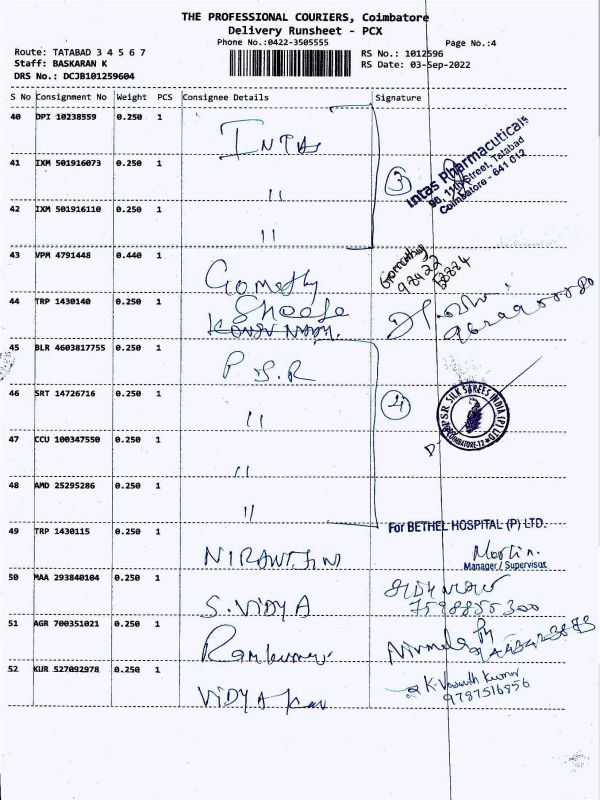 THE PROFESSIONAL COURIERS, Coimbatore
Delivery Runsheet - PCX
Phone No.:0422-3505555
Page No.:4
Route: TATABAD 3 4 5 6 7
RS No.: 1012596
Staff: BASKARAN K
RS Date: 03-Sep-2022
DRS No.: DCJB101259604
S No Consignment No Weight PCS Consignee Details Signature
40 DPI 10238559 0.250 1 INTAS
Intas Pharmaceuticals
98, 11th Street, Tatabad
Coimbatore - 641 012
41 IXM 501916073 0.250 1 "
3
42 IXM 501916110 0.250 1 "
43 VPM 4791448 0.440 1 Gomathy
Gomathy
98422
44 TRP 1430140 0.250 1
45 BLR 4603817755 0.250 1 P.S.R
46 SRT 14726716 0.250 1 "
4
P.S.R. SILK SAREES INDIA (P) LTD
COIMBATORE-12
47 CCU 100347550 0.250 1 "
48 AMD 25295286 0.250 1 "
For BETHEL HOSPITAL (P) LTD.
49 TRP 1430115 0.250 1
Manager / Supervisor
50 MAA 293840104 0.250 1 S.VIDYA
7598855300
51 AGR 700351021 0.250 1 Ramkumar
Nirmala
52 KUR 527092978 0.250 1 VIDYA
K. Vasanth Kumar
9787516956